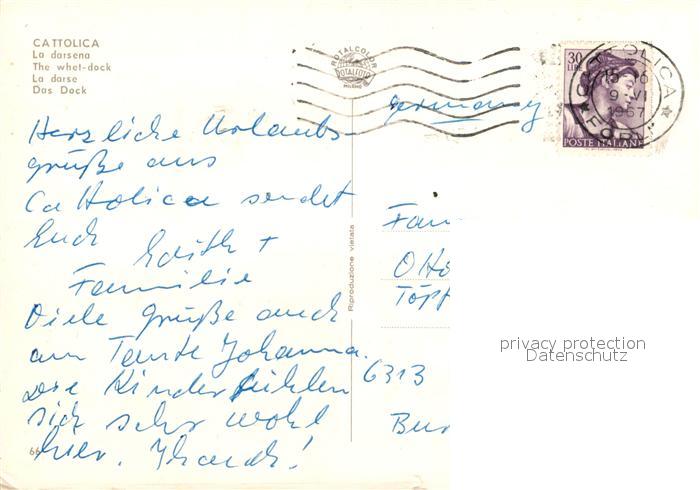 CATTOLICA
La darsena
The whet-dock
La darse
Das Dock
Herzliche Urlaubs-
grüße aus
Cattolica sendet
Euch
Edith +
Familie
Viele Grüße auch
an Tante Johanna.
Die Kinder fühlen
sich sehr wohl
hier.
66
Riproduzione vietata
ROTALCOLOR
ROTALFOTO
MILANO
30
LIRE
POSTE ITALIANE
CATTOLICA
15-16
9-VI
1967
FORLI
Germany
Fam
Otto
Töpf
6313
Bur
privacy protection
Datenschutz